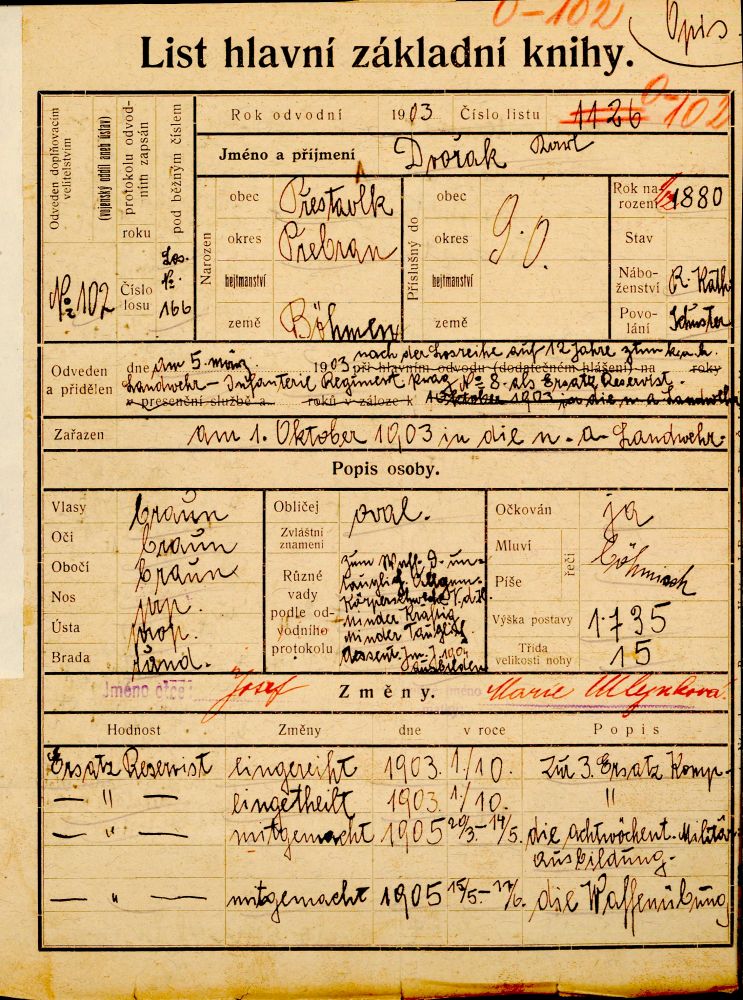 0-102
Opis
List hlavní základní knihy.
Odveden doplňovacím velitelstvím
(vojenský oddíl aneb ústav)
protokolu odvodním zapsán
pod běžným číslem
roku
Číslo losu
Los. No. 166
No. 102
Rok odvodní 1903 Číslo listu 1126 0-102
Jméno a příjmení Dvořák Karl
Narozen
obec Přestavlk
okres Přebran
hejtmanství
země Böhmen
Příslušný do
obec
okres
hejtmanství
země
g. O.
Rok narození 1880
Stav
Náboženství R. Kath.
Povolání Schuster
Odveden a přidělen
dne am 5. März 1903 nach der Losreihe auf 12 Jahre zum k. k.
při hlavním odvodu (dodatečném hlášení) na roky
Landwehr-Infanterie Regiment Prag No 8 als Ersatz Reservist.
v presenční službě a roků v záloze k Oktober 1903 in die n. a. Landwehr
Zařazen am 1. Oktober 1903 in die n. a. Landwehr.
Popis osoby.
Vlasy braun
Oči braun
Obočí braun
Nos prp.
Ústa prop.
Brada rund.
Obličej oval.
Zvláštní znamení
Různé vady podle odvodního protokolu
zum Waff. D. un-
tauglich Allgem.
Körperschwäche
minder Kräftig
minder Tauglich
Assent. Jm. J. 190
ausbilden
Očkován ja
Mluví
Píše
řečí
böhmisch
Výška postavy 1.735
Třída velikosti nohy 15
Jméno otce Josef Změny. jméno Marie Mlejnková
Hodnost Změny dne v roce Popis
Ersatz Reservist eingereiht 1903. 1./10. Zur 3. Ersatz Komp-
— " — eingetheilt 1903. 1./10. "
— " — mitgemacht 1905 20/3.-14/5. die achtwöchent. Militär
ausbildung.
— " — mitgemacht 1905 15/5.-17/6. die Waffenübung